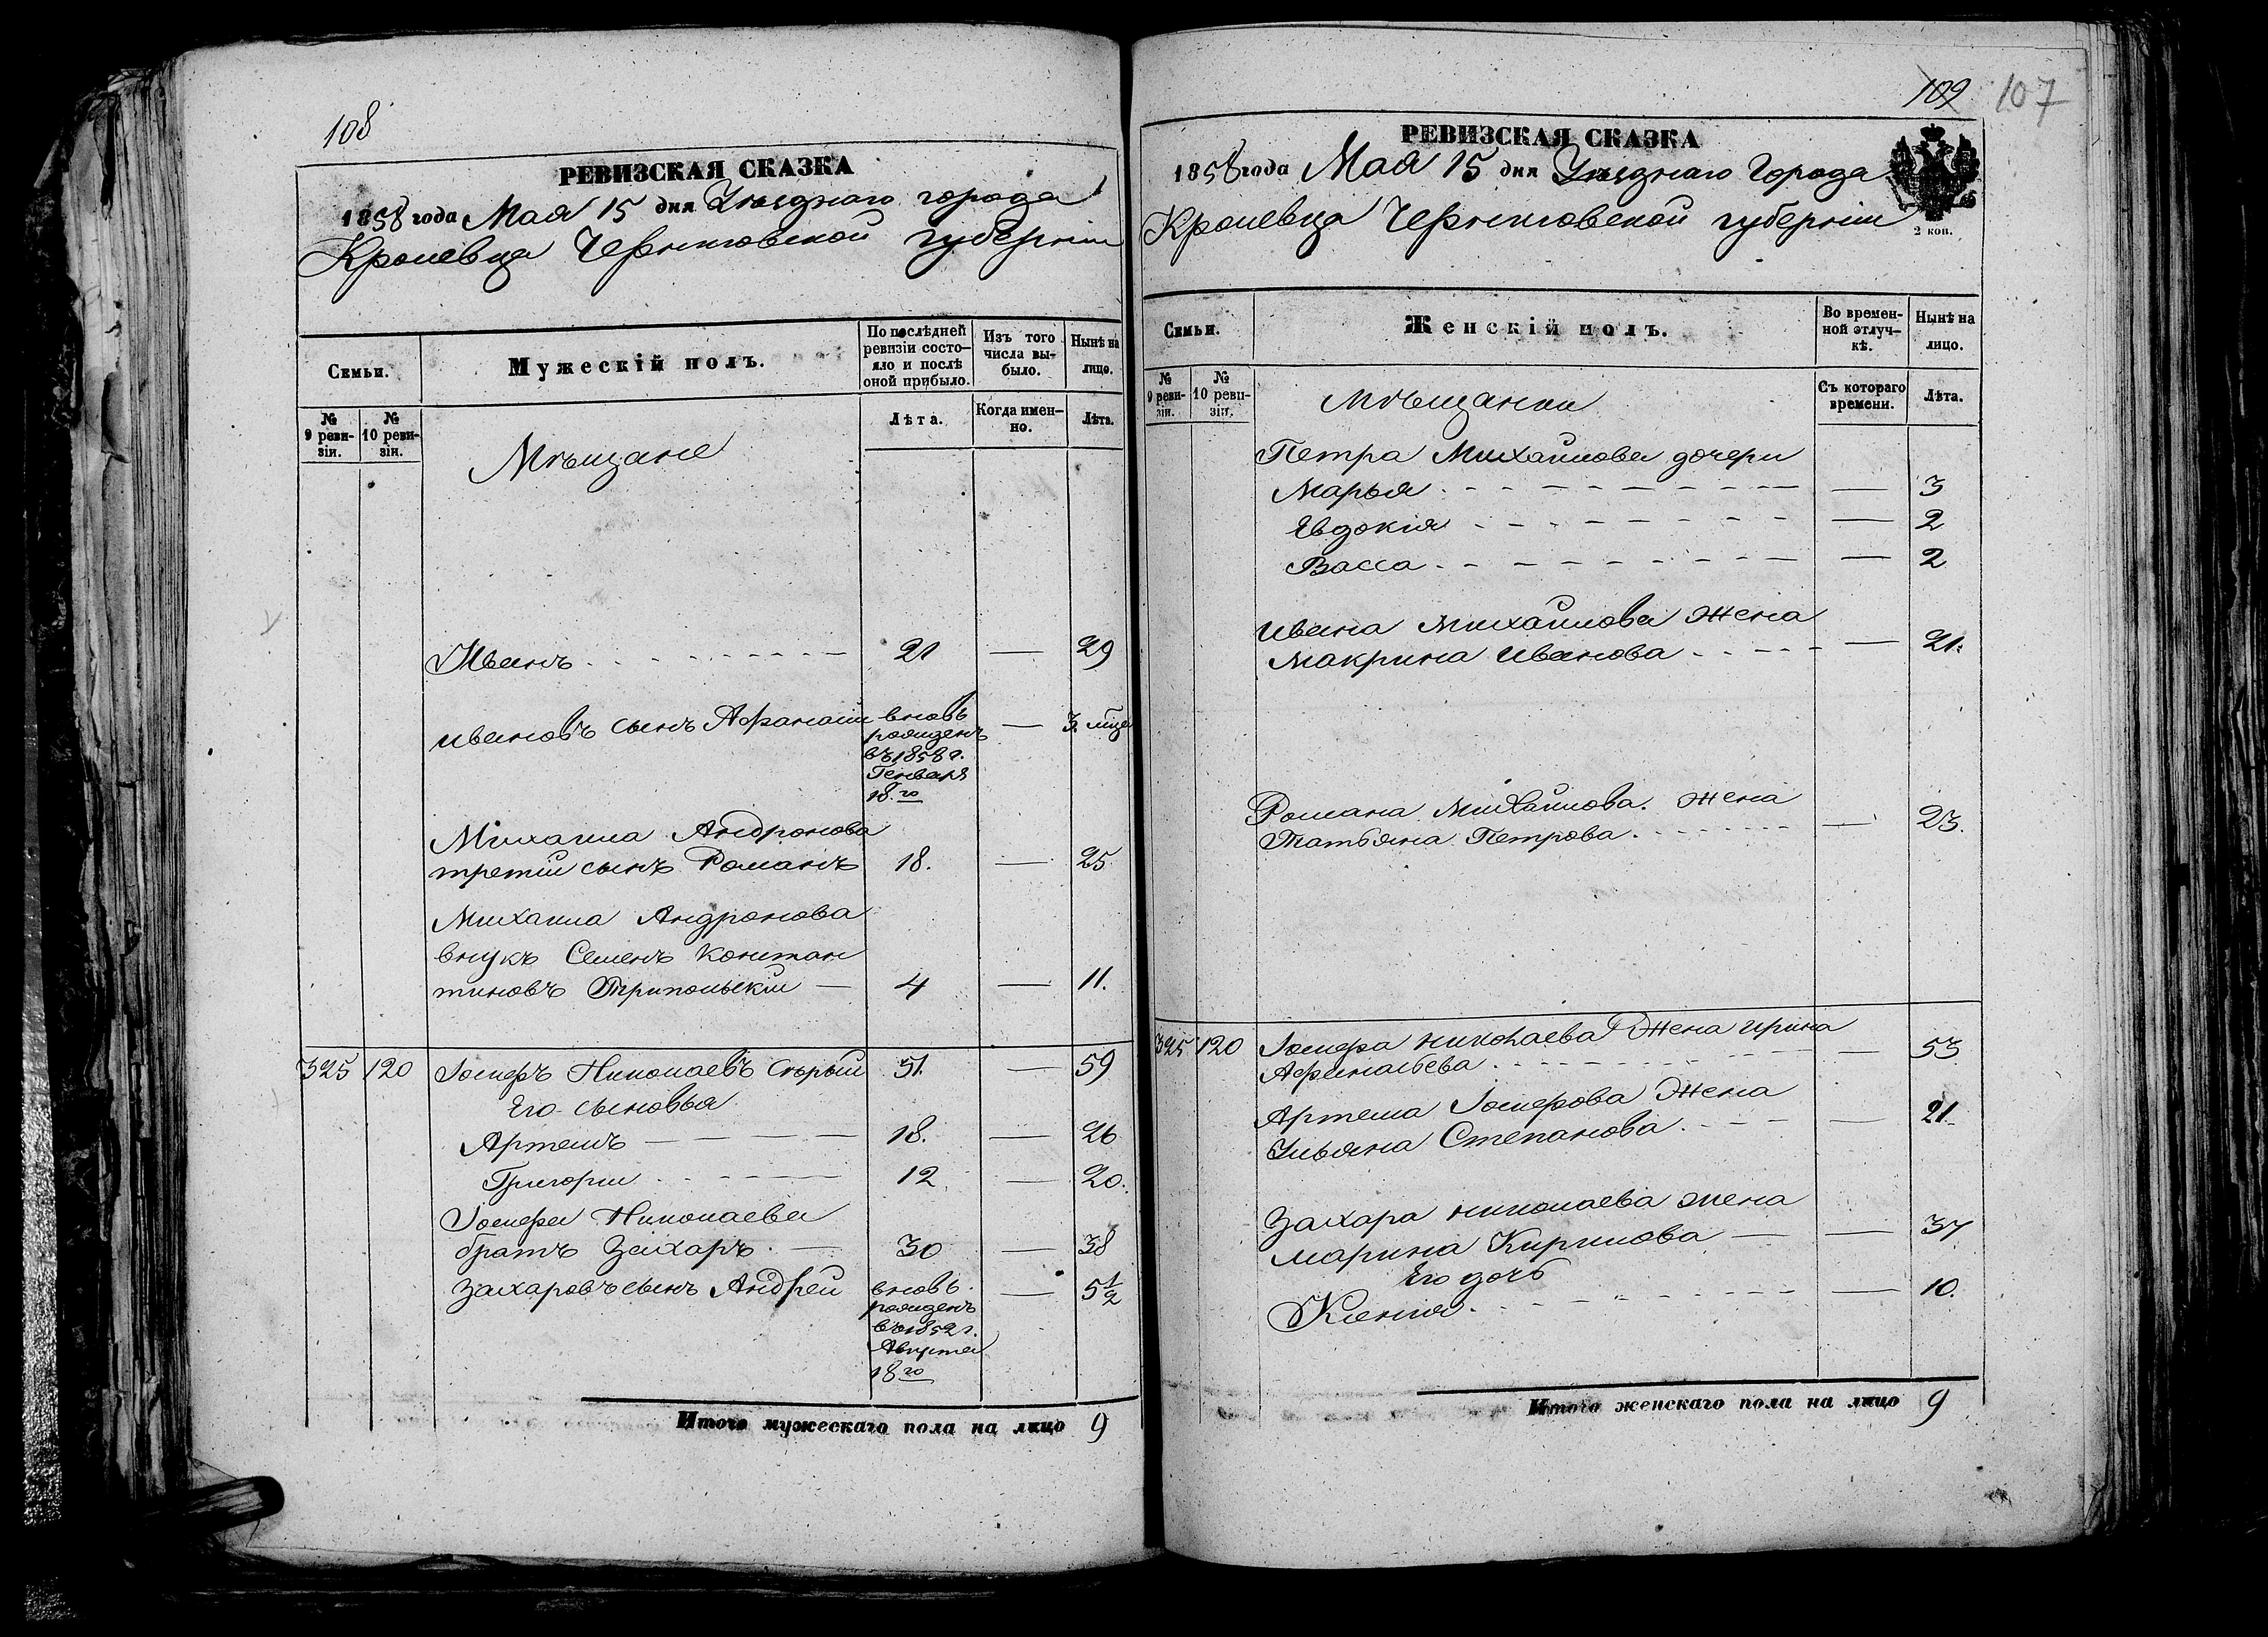 108
РЕВИЗСКАЯ СКАЗКА
1858 года Мая 15 дня Уѣзднаго города
Кролевца Черниговской губерніи
Семьи.
Мужескій полъ.
По послѣдней ревизіи состояло и послѣ оной прибыло.
Изъ того числа выбыло.
Нынѣ на лицо.
№ 9 ревизіи.
№ 10 ревизіи.
Мѣщане
Лѣта.
Когда именно.
Лѣта.
Иванъ 21 — 29
Ивановъ сынъ Афанасій вновь рожденъ въ 1858 г. Генваря 18го — 3 мѣся
Михаила Андронова
третій сынъ Романъ 18. — 25
Михаила Андронова
внукъ Семенъ Констан
тиновъ Трипольскій — 4 — 11.
325 120 Іосифъ Николаевъ Сѣрый 51. — 59
Его сыновья
Артемъ 18. — 26
Григорій 12 — 20.
Іосифа Николаева
братъ Захаръ 30 — 38
Захаровъ сынъ Андрей вновь рожденъ въ 1852 г. Августа 18го — 5 1/2
Итого мужескаго пола на лицо 9
109 107
РЕВИЗСКАЯ СКАЗКА
1858 года Мая 15 дня Уѣзднаго Города
Кролевца Черниговской губерніи
2 коп.
Семьи.
Женскій полъ.
Во временной отлучкѣ.
Нынѣ на лицо.
№ 9 ревизіи.
№ 10 ревизіи.
Мѣщанки
Съ котораго времени.
Лѣта.
Петра Михайлова дочери
Марья — 3
Евдокія — 2
Васса — 2
Ивана Михайлова жена
Макрина Иванова — 21.
Романа Михайлова жена
Татьяна Петрова — 23.
325 120 Іосифа Николаева Жена Ирина
Афанасьева — 53
Артема Іосифова Жена
Ульяна Степанова — 21.
Захара Николаева жена
Марина Кирилова — 37
Его дочь
Ксенія — 10.
Итого женскаго пола на лицо 9